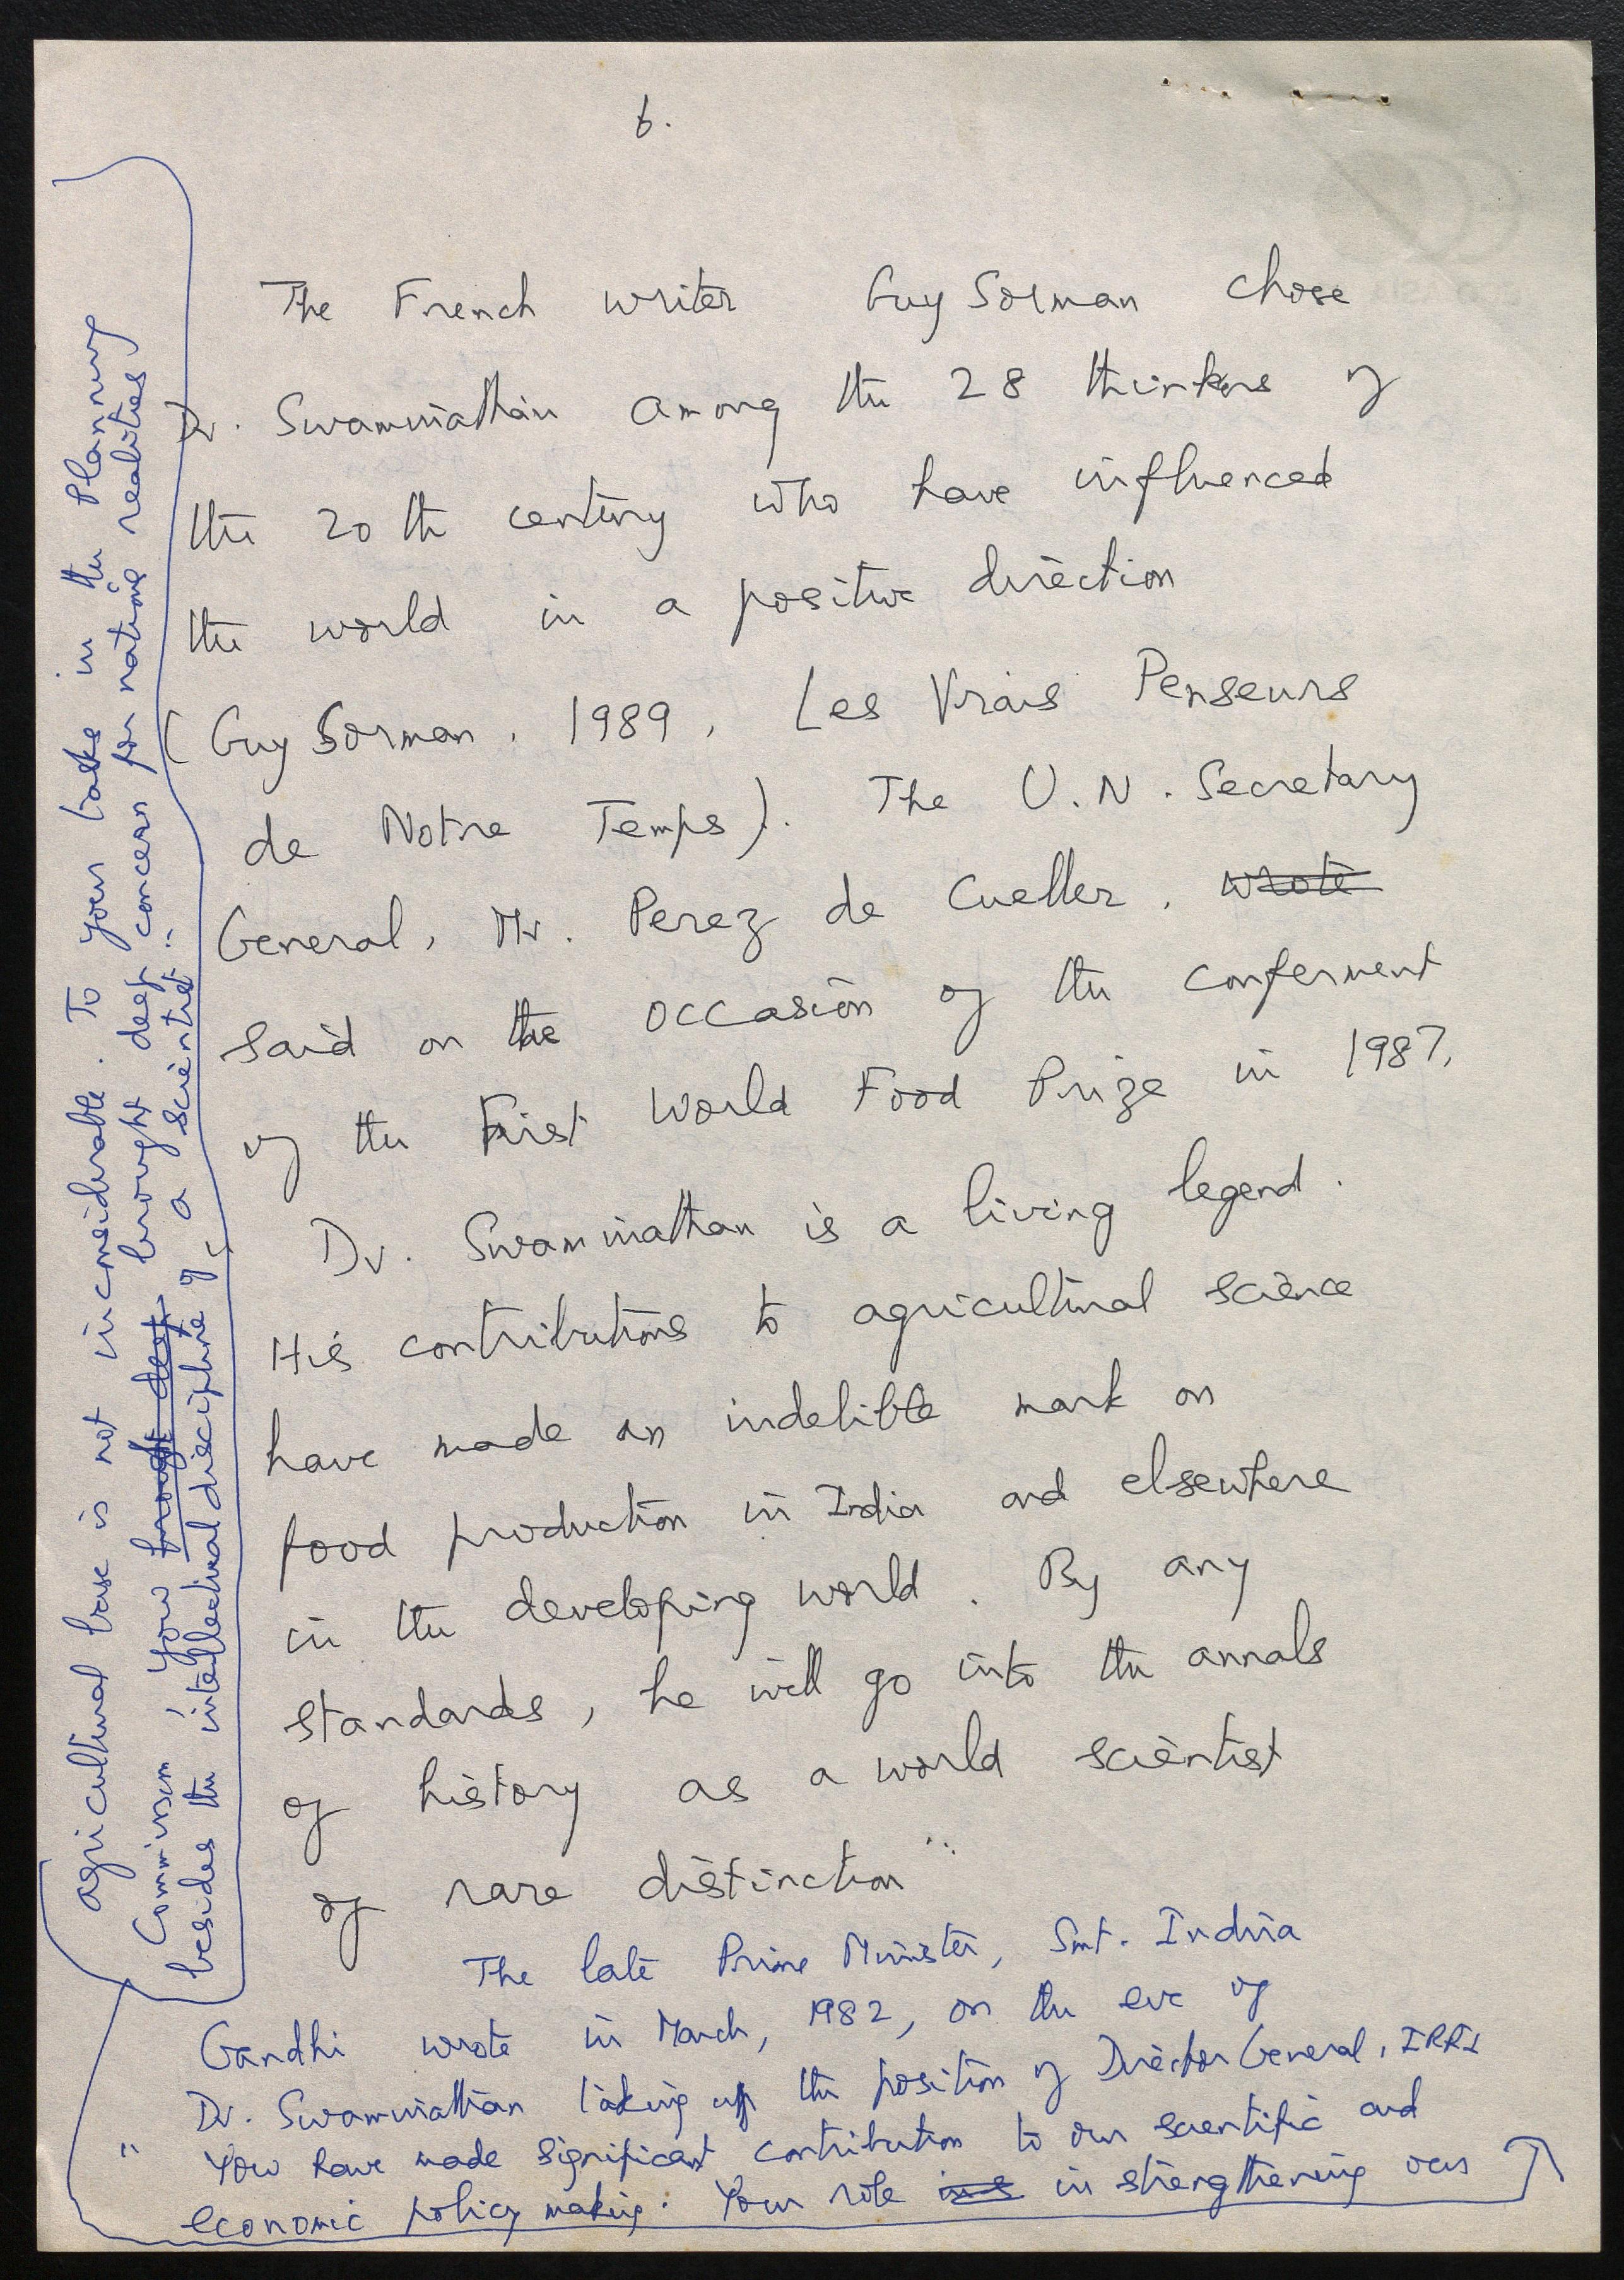 6.
The French writer Guy Sorman chose
Dr. Swaminathan among the 28 thinkers of
the 20th century who have influenced
the world in a positive direction
(Guy Sorman, 1989, Les Vrais Penseurs
de Notre Temps). The U.N. Secretary
General, Mr. Perez de Cueller, wrote
said on the occasion of the conferment
of the First World Food Prize in 1987,
Dr. Swaminathan is a living legend.
His contributions to agricultural science
have made an indelible mark on
food production in India and elsewhere
in the developing world. By any
standards, he will go into the annals
of history as a world scientist
of rare distinction"
The late Prime Minister, Smt. Indira
Gandhi wrote in March, 1982, on the eve of
Dr. Swaminathan taking up the position of Director General, IRRI
"You have made significant contribution to our scientific and
economic policy making. Your role in strengthening our
agricultural base is not inconsiderable. To your tasks in the Planning
Commission, you brought deep brought deep concern for nations realities
besides the intellectual discipline of a scientist"